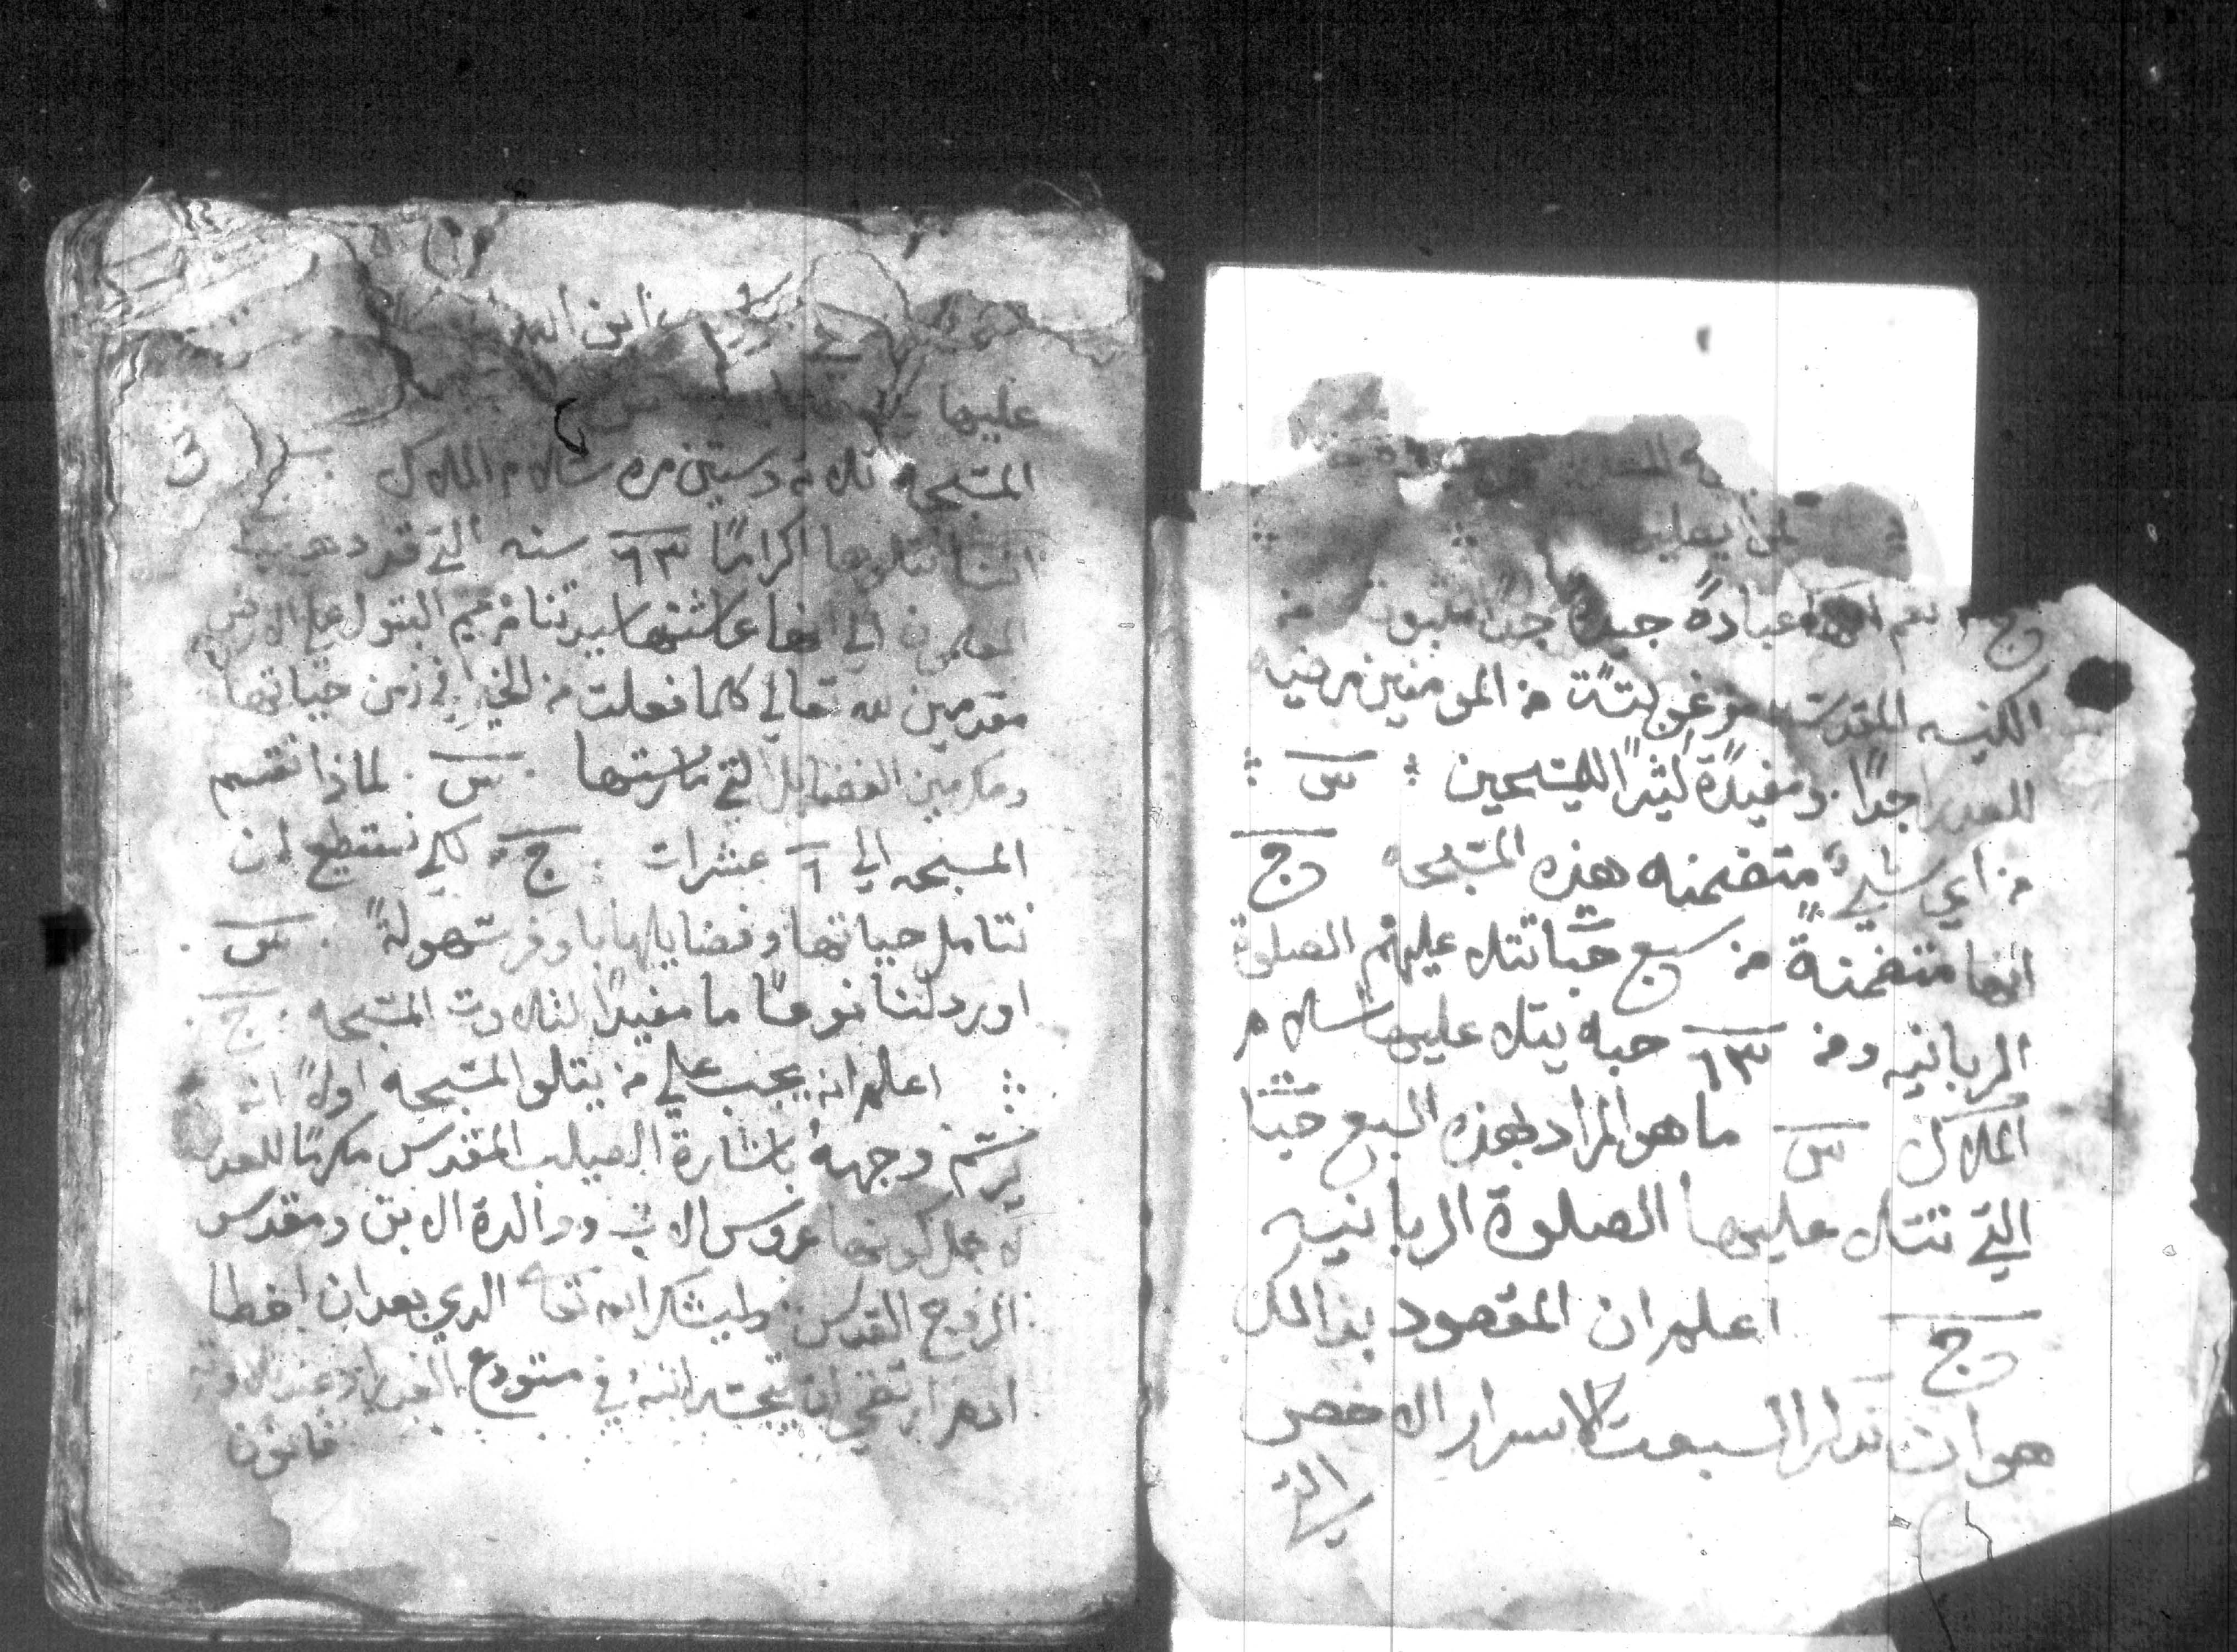 لمن يصليه
ج نعم انها عبادةً جيدةً جداً مثبوته من
الكنيسه المقدسه مرغوبتةً من المومنين مرضيه
للعدرا جداً ومفيدةً كثيراً للمسيحيين س
من اي شيء متضمنه هذه المسبحه ج
انها متضمنةً من سبع حبات تتلا عليهم الصلوة
الربانيه ومن ٦٣ حبه يتلا عليها سلام
الملاك س ما هو المراد بهذه السبع حبات
التي تتلا عليها الصلوة الربانيه
ج اعلم ان المقصود بذالك
هو ان نذكر السبعت الاسرار الاخص
التي
ابن الله
عليها
المسبحه ثلاثه وستين مره سلام الملاك
اننا نتلوها اكراماً ٦٣ سنه التي قد دهب
المعلمون الي انها عاشتها سيدتنا مريم البتول علي الارض
مقدمين لله تعالي كلما فعلت من الخير في زمن حياتها
ومكرمين الفضايل التي مارستها س لماذا تقسم
المسبحه الي ٦ عشرات ج لكي نستطيع ان
نتامل حياتها وفضايلها باوفر سهولةً س
اورد لنا نوعاً ما مفيداً لتلاوت المسبحه ج
اعلم انه يجب علي من يتلو المسبحه اولاً انه
يرسم وجههُ باشارة الصليب المقدس مكرماً للعدرا
لاجل كونها عروس الاب ووالدة الابن ومقدس
الروح القدس وليشكر الله تعا الدي بعد ان اخطا
ادم ارتضي ان يتجسد ابنهُ في مستودع العدرا وعند تلاوة
قانون